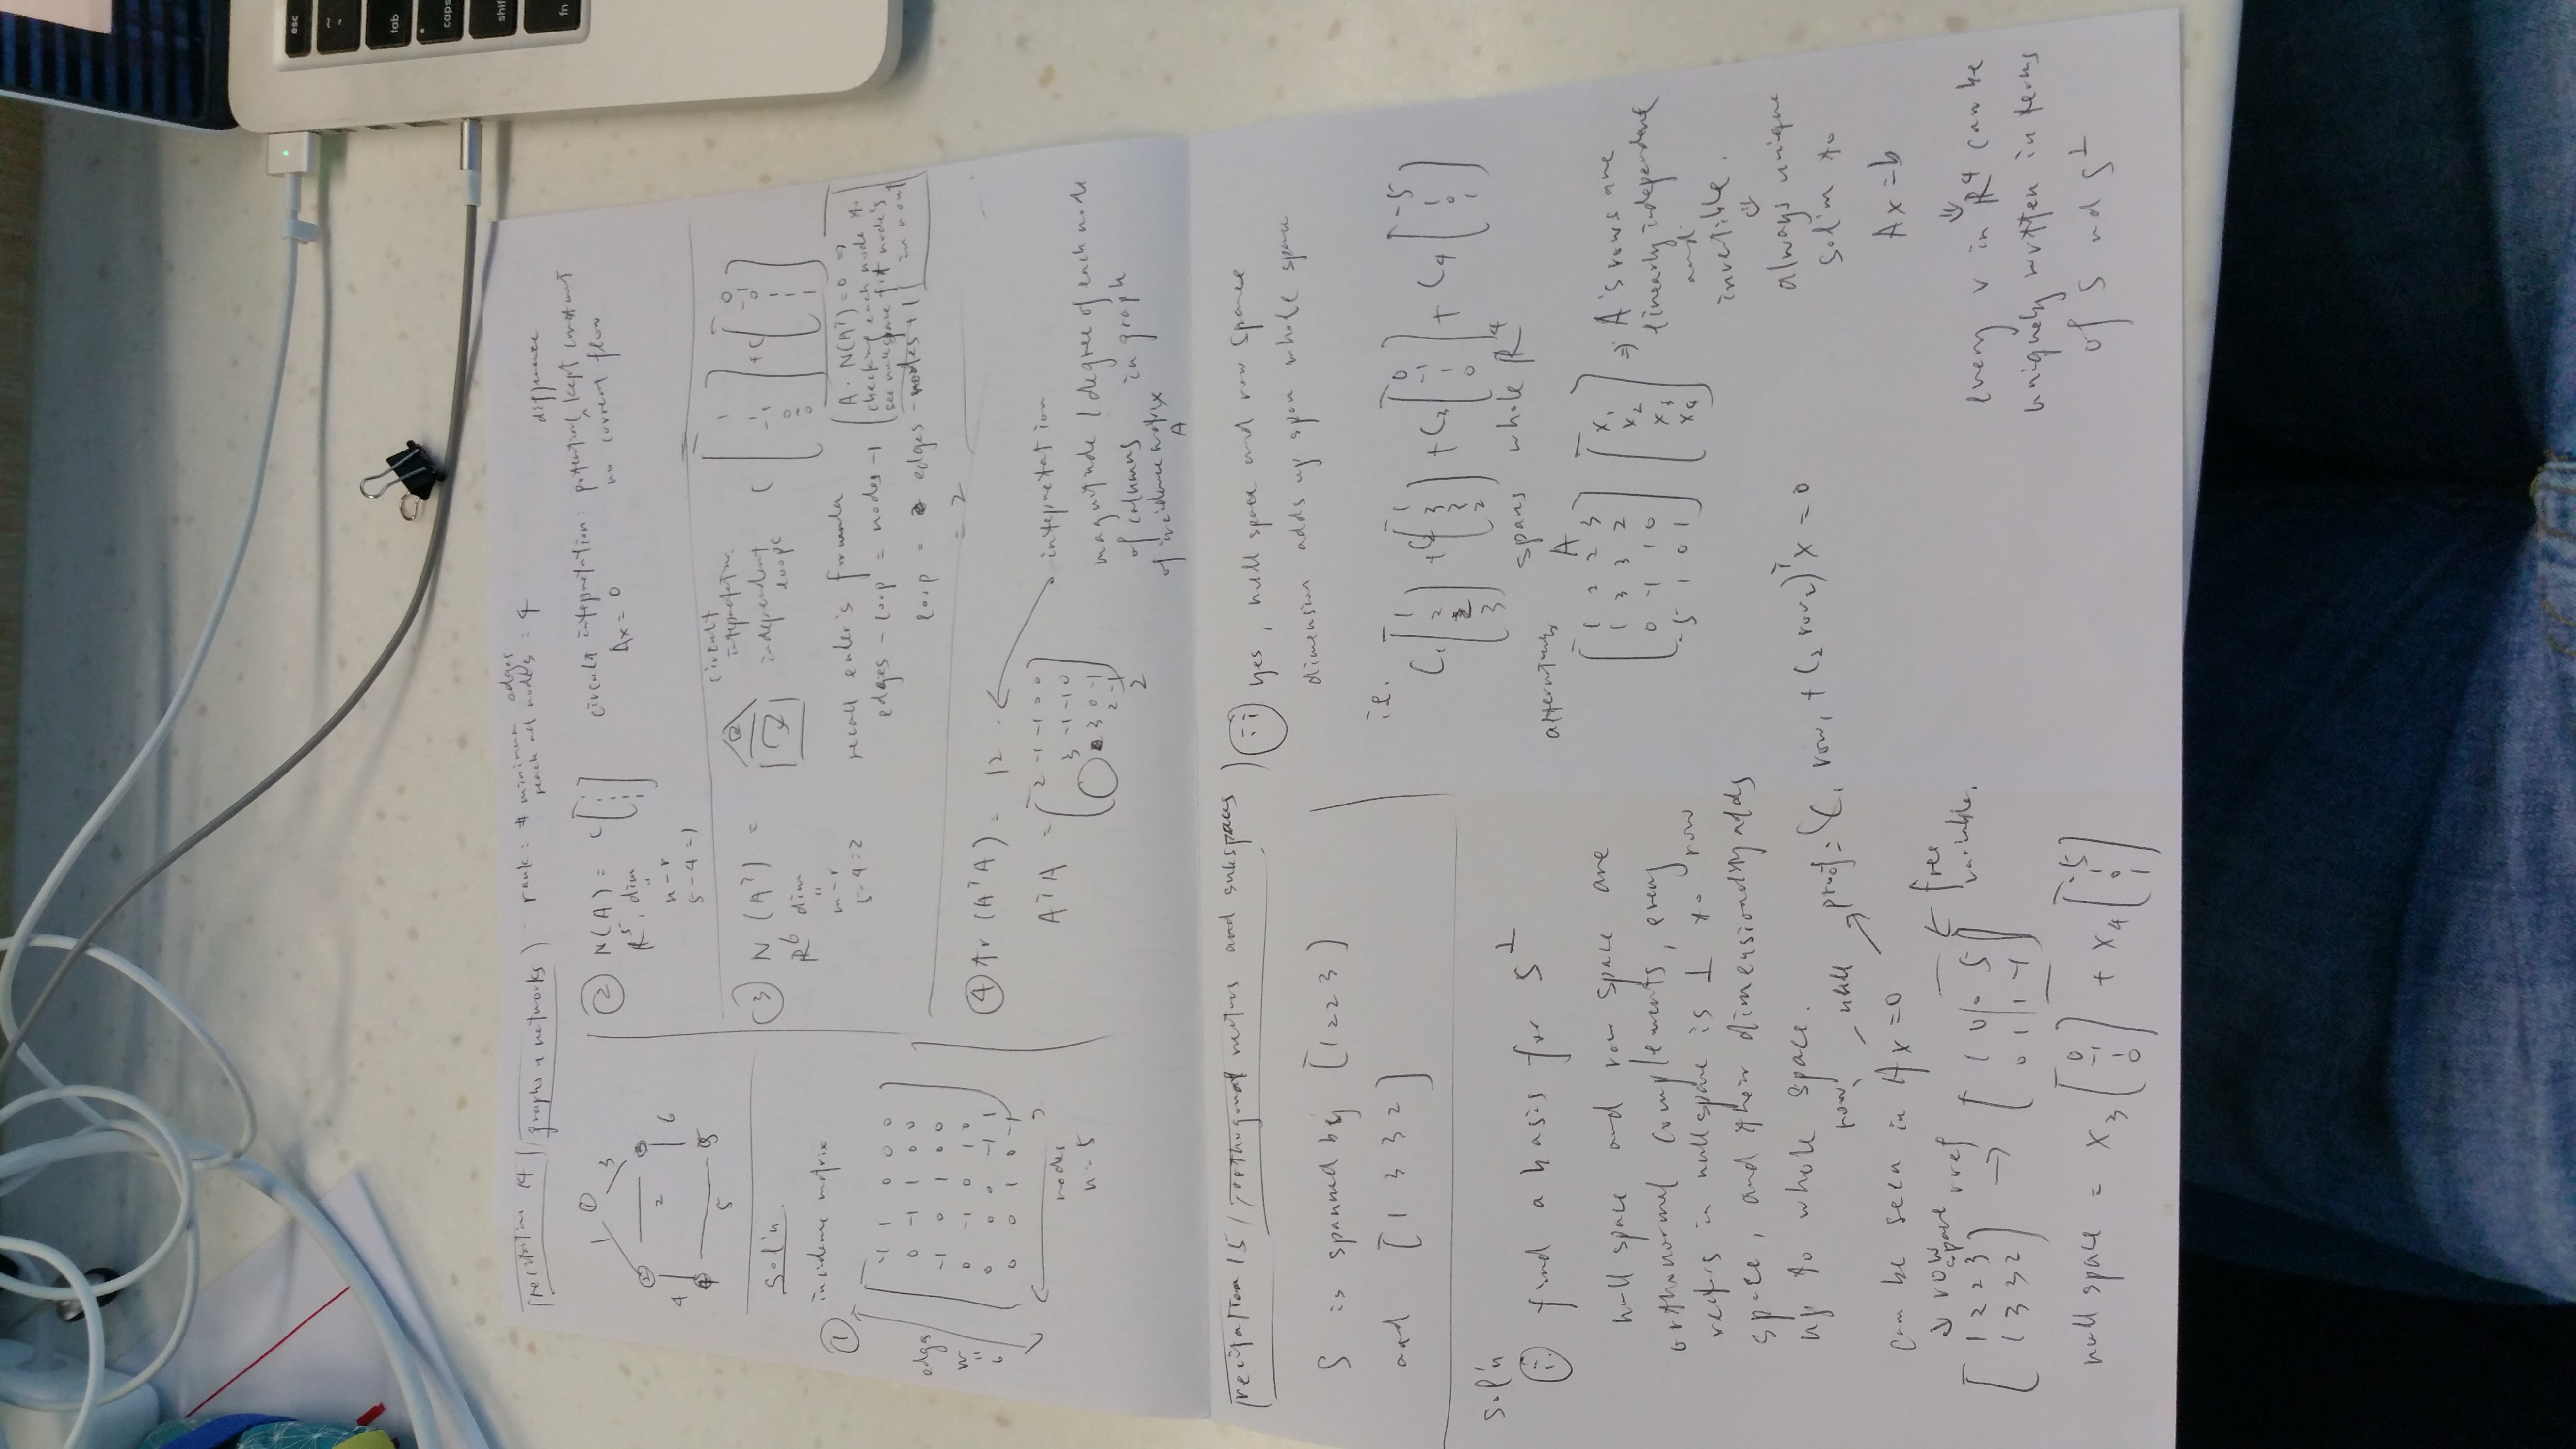 esc
~
`
tab
caps
shif
fn
recitation 14 / graphs & networks
rank: # minimum edges
reach all nodes = 4
1 1 3
2 2 3
4 6
4 5 5
sol'n
① incidence matrix
edges
m
"
6
-1 1 0 0 0
0 -1 1 0 0
-1 0 1 0 0
0 -1 0 1 0
0 0 0 -1 1
0 0 1 0 -1
nodes
n = 5
② N(A) = c [1 1 1 1 1]
R^5, dim
"
n-r
5-4=1
difference
circuit intepretation: potential kept constant
Ax = 0 no current flow
③ N(A^T) =
R^6 dim
"
m-r
5-4=2
circuit
intepretation
independent
loops
c [1 1 -1 0 0 0] + c [0 -1 0 1 1 1]
recall euler's formula
edges - loop = nodes - 1
loop = edges - nodes + 1
= 2
A · N(A^T) = 0 ⇒
checking each node to
see nullspace fit node's
in n out
④ tr(A^T A) = 12
A^T A =
2 -1 -1 0 0
3 -1 -1 0
3 0 -1
2 -1
2
intepretation
magnitude / degree of each node
of columns in graph
of incidence matrix
A
recitation 15 / orthogonal vectors and subspaces
S is spanned by [1 2 2 3]
and [1 3 3 2]
sol'n
i find a basis for S^⊥
null space and row space are
orthonormal complements, every
vectors in nullspace is ⊥ to row
space, and their dimensionality adds
up to whole space.
row null
can be seen in Ax = 0
proof: (C1 row1 + C2 row2)^T x = 0
↓ row space
[1 2 2 3
1 3 3 2] rref → [1 0 0 5
0 1 1 -1] ← free variable.
null space = x3 [0 -1 1 0] + x4 [-5 1 0 1]
ii yes, null space and row space
dimension adds up span whole space
i.e.
C1 [1 2 2 3] + C2 [1 3 3 2] + C3 [0 -1 1 0] + C4 [-5 1 0 1]
spans whole R^4
A
1 2 2 3
1 3 3 2
0 -1 1 0
-5 1 0 1
[x1 x2 x3 x4]
⇒ A's rows are
linearly independent
and
invertible.
⇓
always unique
sol'n to
Ax = b
⇓
every v in R^4 can be
uniquely written in terms
of S nd S^⊥